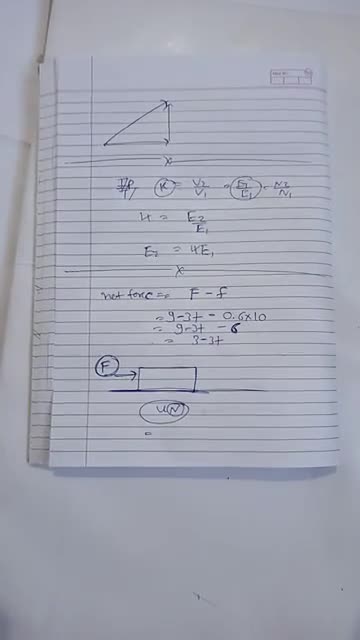 K = V2/V1 = E2/E1 = N2/N1
4 = E2/E1
E2 = 4E1
x
net force = F - f
= 9-3t - 0.6x10
= 9-3t - 6
= 3-3t
F
=